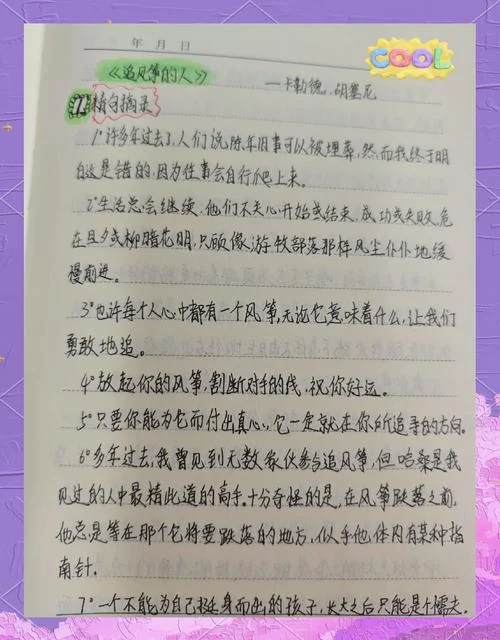 年 月 日
COOL
《追风筝的人》
—卡勒德·胡塞尼
1 精句摘录
1°许多年过去了,人们说陈年旧事可以被埋葬,然而我终于明
白这是错的,因为往事会自行爬上来。
2°生活总会继续,他们不关心开始或结束,成功或失败,危
在旦夕或柳暗花明,只顾像游牧部落那样风尘仆仆地缓
慢前进。
3°也许每个人心中都有一个风筝,无论它意味着什么,让我们
勇敢地追。
4°放起你的风筝,割断对手的线,祝你好运。
5°只要你能为它而付出真心,它一定就在你所追寻的方向。
6°多年过去,我曾见到无数家伙参与追风筝,但哈桑是我
见过的人中最精此道的高手。十分奇怪的是,在风筝跌落之前,
他总是等在那个它将要跌落的地方,似乎他体内有某种指
南针.
7°一个不能为自己挺身而出的孩子,长大之后只能是个懦夫。